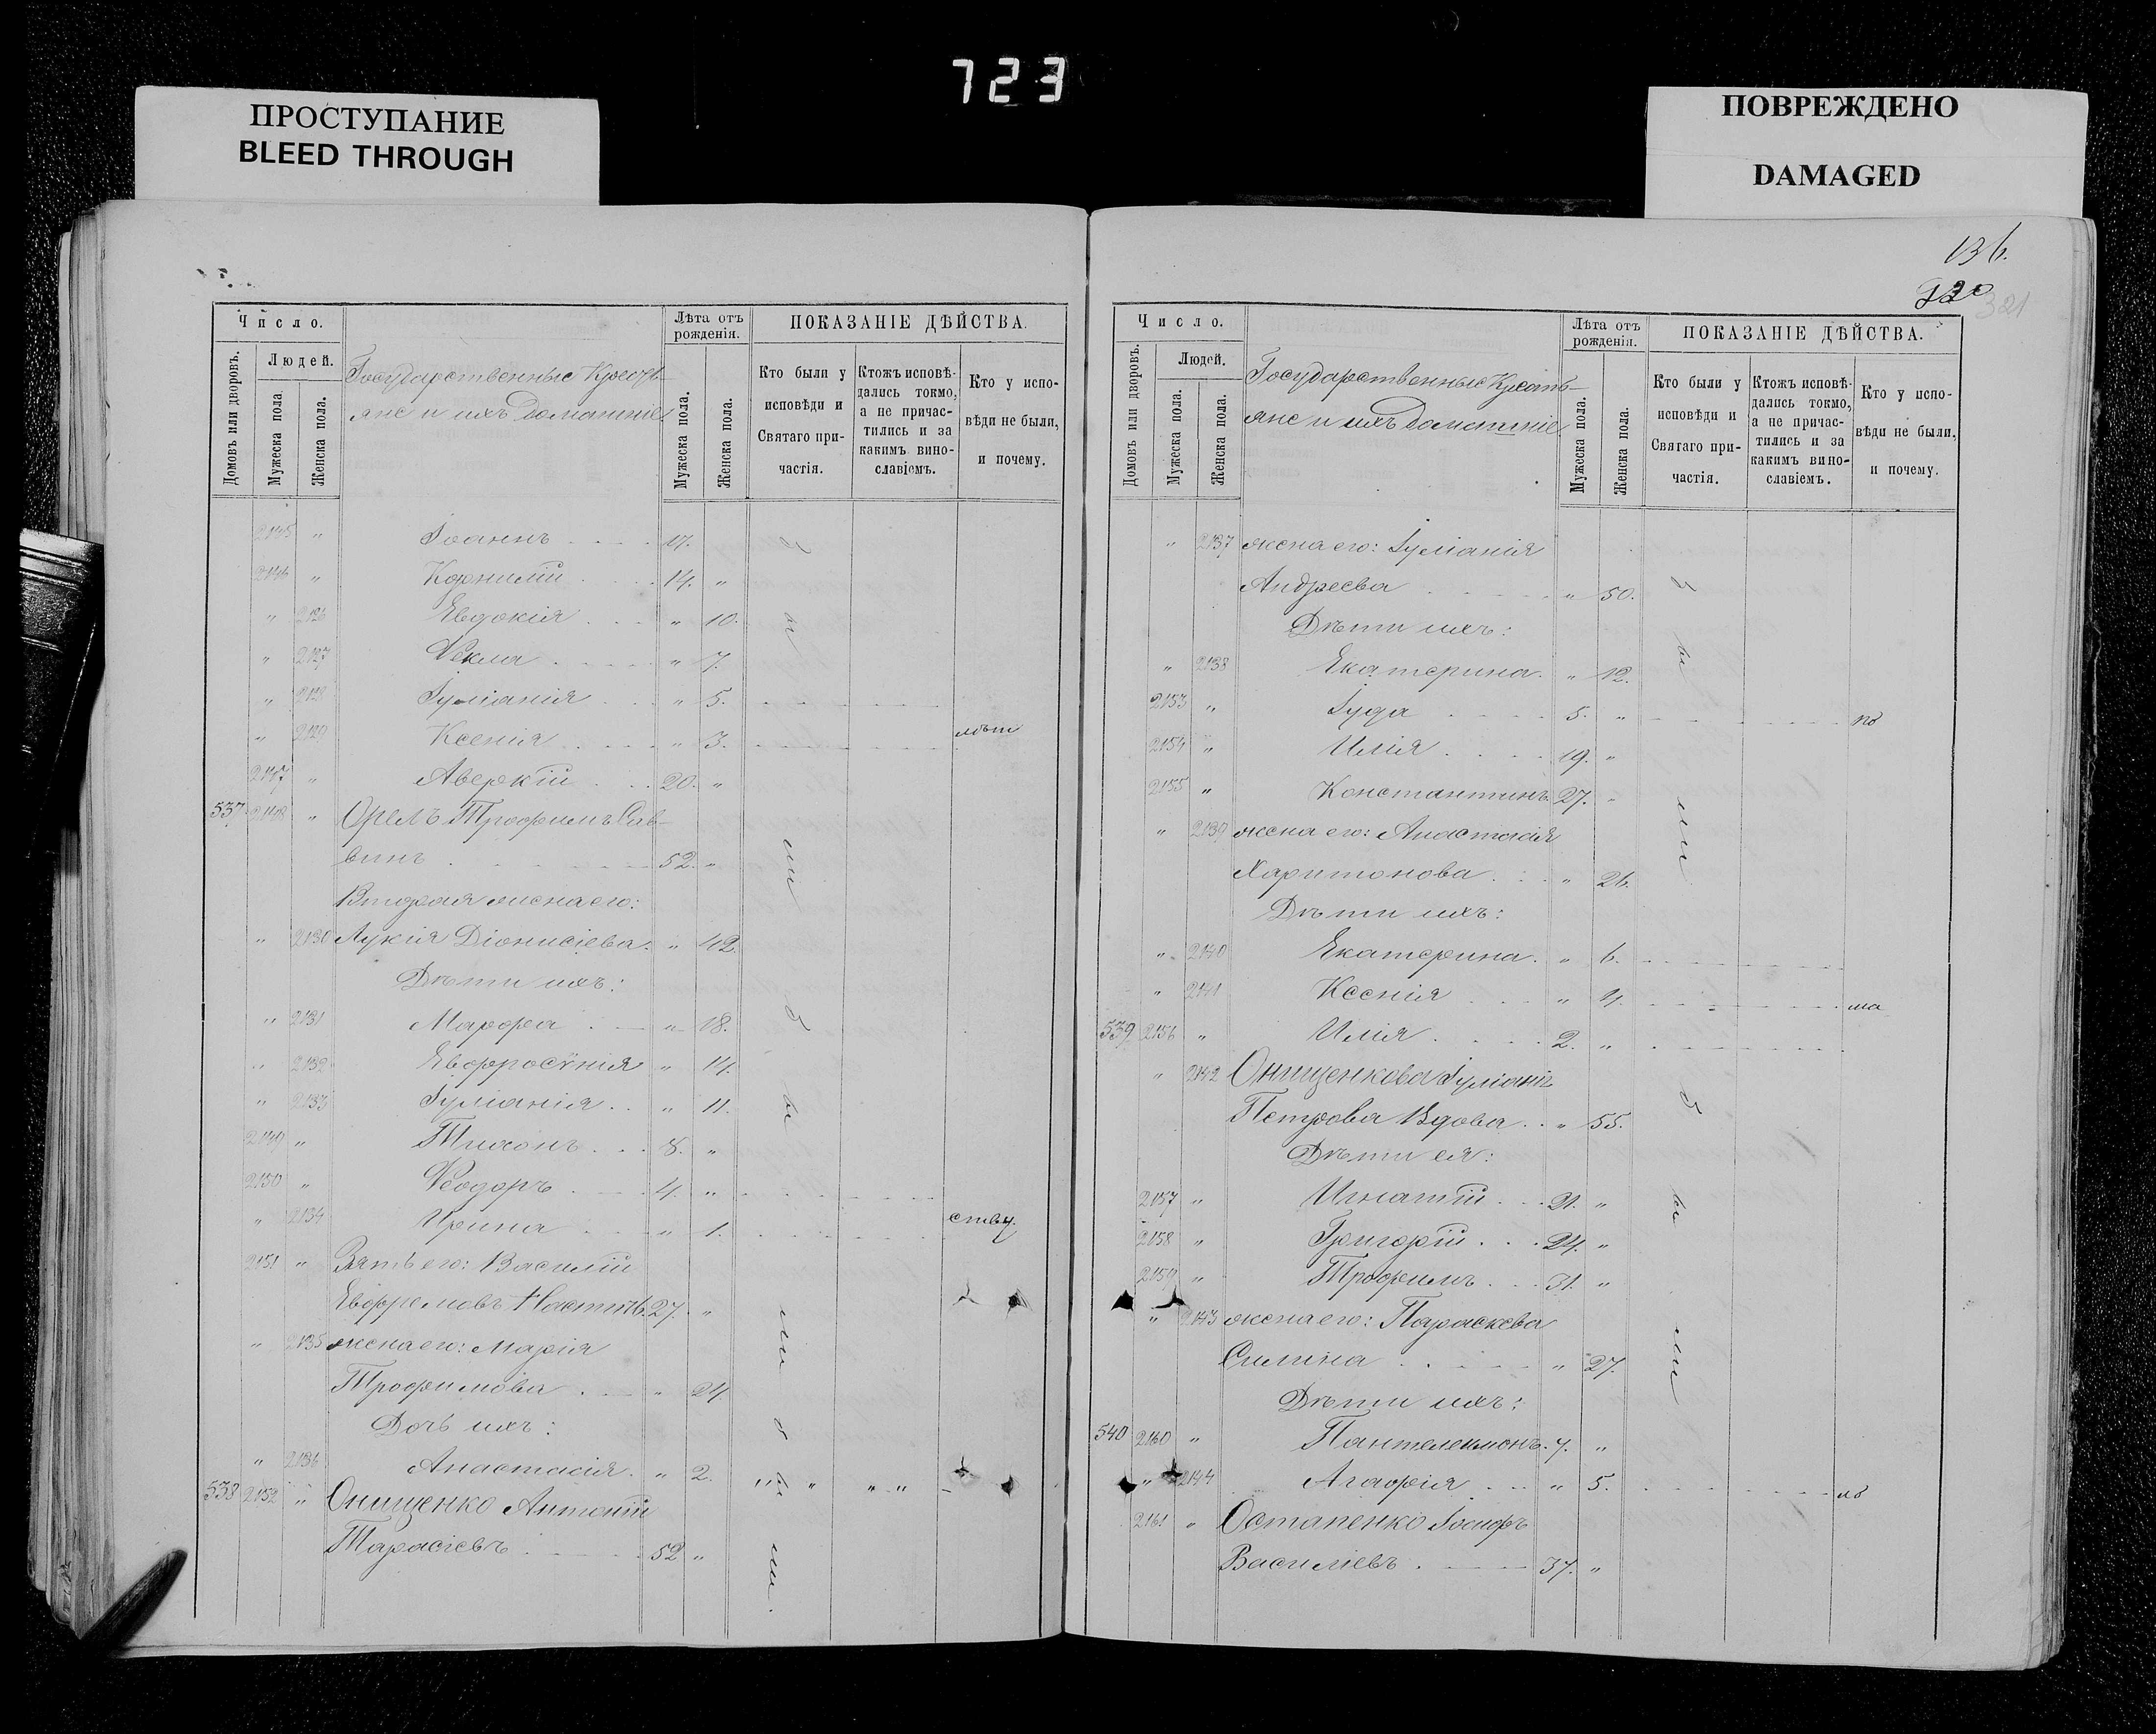 723
ПРОСТУПАНИЕ
BLEED THROUGH
ПОВРЕЖДЕНО
DAMAGED
Число.
Людей.
Домовъ или дворовъ.
Мужеска пола
Женска пола.
Государственные Кресть-
яне и ихъ домашніе
Лѣта отъ рожденія.
Мужеска пола.
Женска пола.
ПОКАЗАНІЕ ДѢЙСТВА.
Кто были у исповѣди и Святаго при-частія.
Ктожъ исповѣ-дались токмо, а не причас-тились и за какимъ вино-славіемъ.
Кто у испо-вѣди не были, и почему.
2145 " Іоаннъ 17.
2146 " Корнилій 14. "
" 2126 Евдокія " 10.
" 2127 Ѳекла " 7.
" Іуліанія " 5.
" 2129 Ксенія " 3. лѣт
2147 " Аверкій 20. "
537 2148 " Орелъ Трофимъ Сав-
винъ 52. "
Вторая жена его:
" 2130 Лукія Діонисіева. " 42.
Дѣти ихъ:
" 2131 Марѳа " 18.
" 2132 Евфросѵнія " 14.
" 2133 Іуліанія " 11.
2149 " Тихонъ 8. "
2150 " Ѳеодоръ 4. "
" 2134 Ирина " 1. ству.
2151 " Зять его: Василій
27. "
" 2135 жена его: Марія
Трофимова " 24.
Дочь ихъ:
" 2136 Анастасія. " 2.
538 2152 " Онищенко Антоній
Тарасіевъ 52 "
были
были
были.
136.
320
321
Число.
Людей.
Домовъ или дворовъ.
Мужеска пола.
Женска пола.
Государственные Кресть-
яне и ихъ Домашніе
Лѣта отъ рожденія.
Мужеска пола.
Женска пола.
ПОКАЗАНІЕ ДѢЙСТВА.
Кто были у исповѣди и Святаго при-частія.
Ктожъ исповѣ-дались токмо, а не причас-тились и за какимъ вино-славіемъ.
Кто у испо-вѣди не были, и почему.
" 2137 жена его: Іуліанія
Андреева " 50.
Дѣти ихъ:
" 2138 Екатерина. " 12.
2153 " Іуда 5. " по
2154 " Илія 19. "
2155 " Константинъ. 27. "
" 2139 жена его: Анастасія
Харитонова " 26.
Дѣти ихъ:
" 2140 Екатерина. " 6.
" 2141 Ксенія " 4. ма
539 2156 " Илія 2. "
" 2142 Онищенкова Іуліанія
Петрова Вдова. " 55.
Дѣти ея:
2157 " Игнатій 21. "
2158 " Григорій 24. "
2159 " Трофимъ 31. "
" 2143 жена его: Параскева
Силина " 27.
Дѣти ихъ:
540 2160 " Пантелеимонъ. 7. "
" 2144 Агафія " 5.
2161 " Остапенко Іосифъ
Василіевъ 37. "
были
были